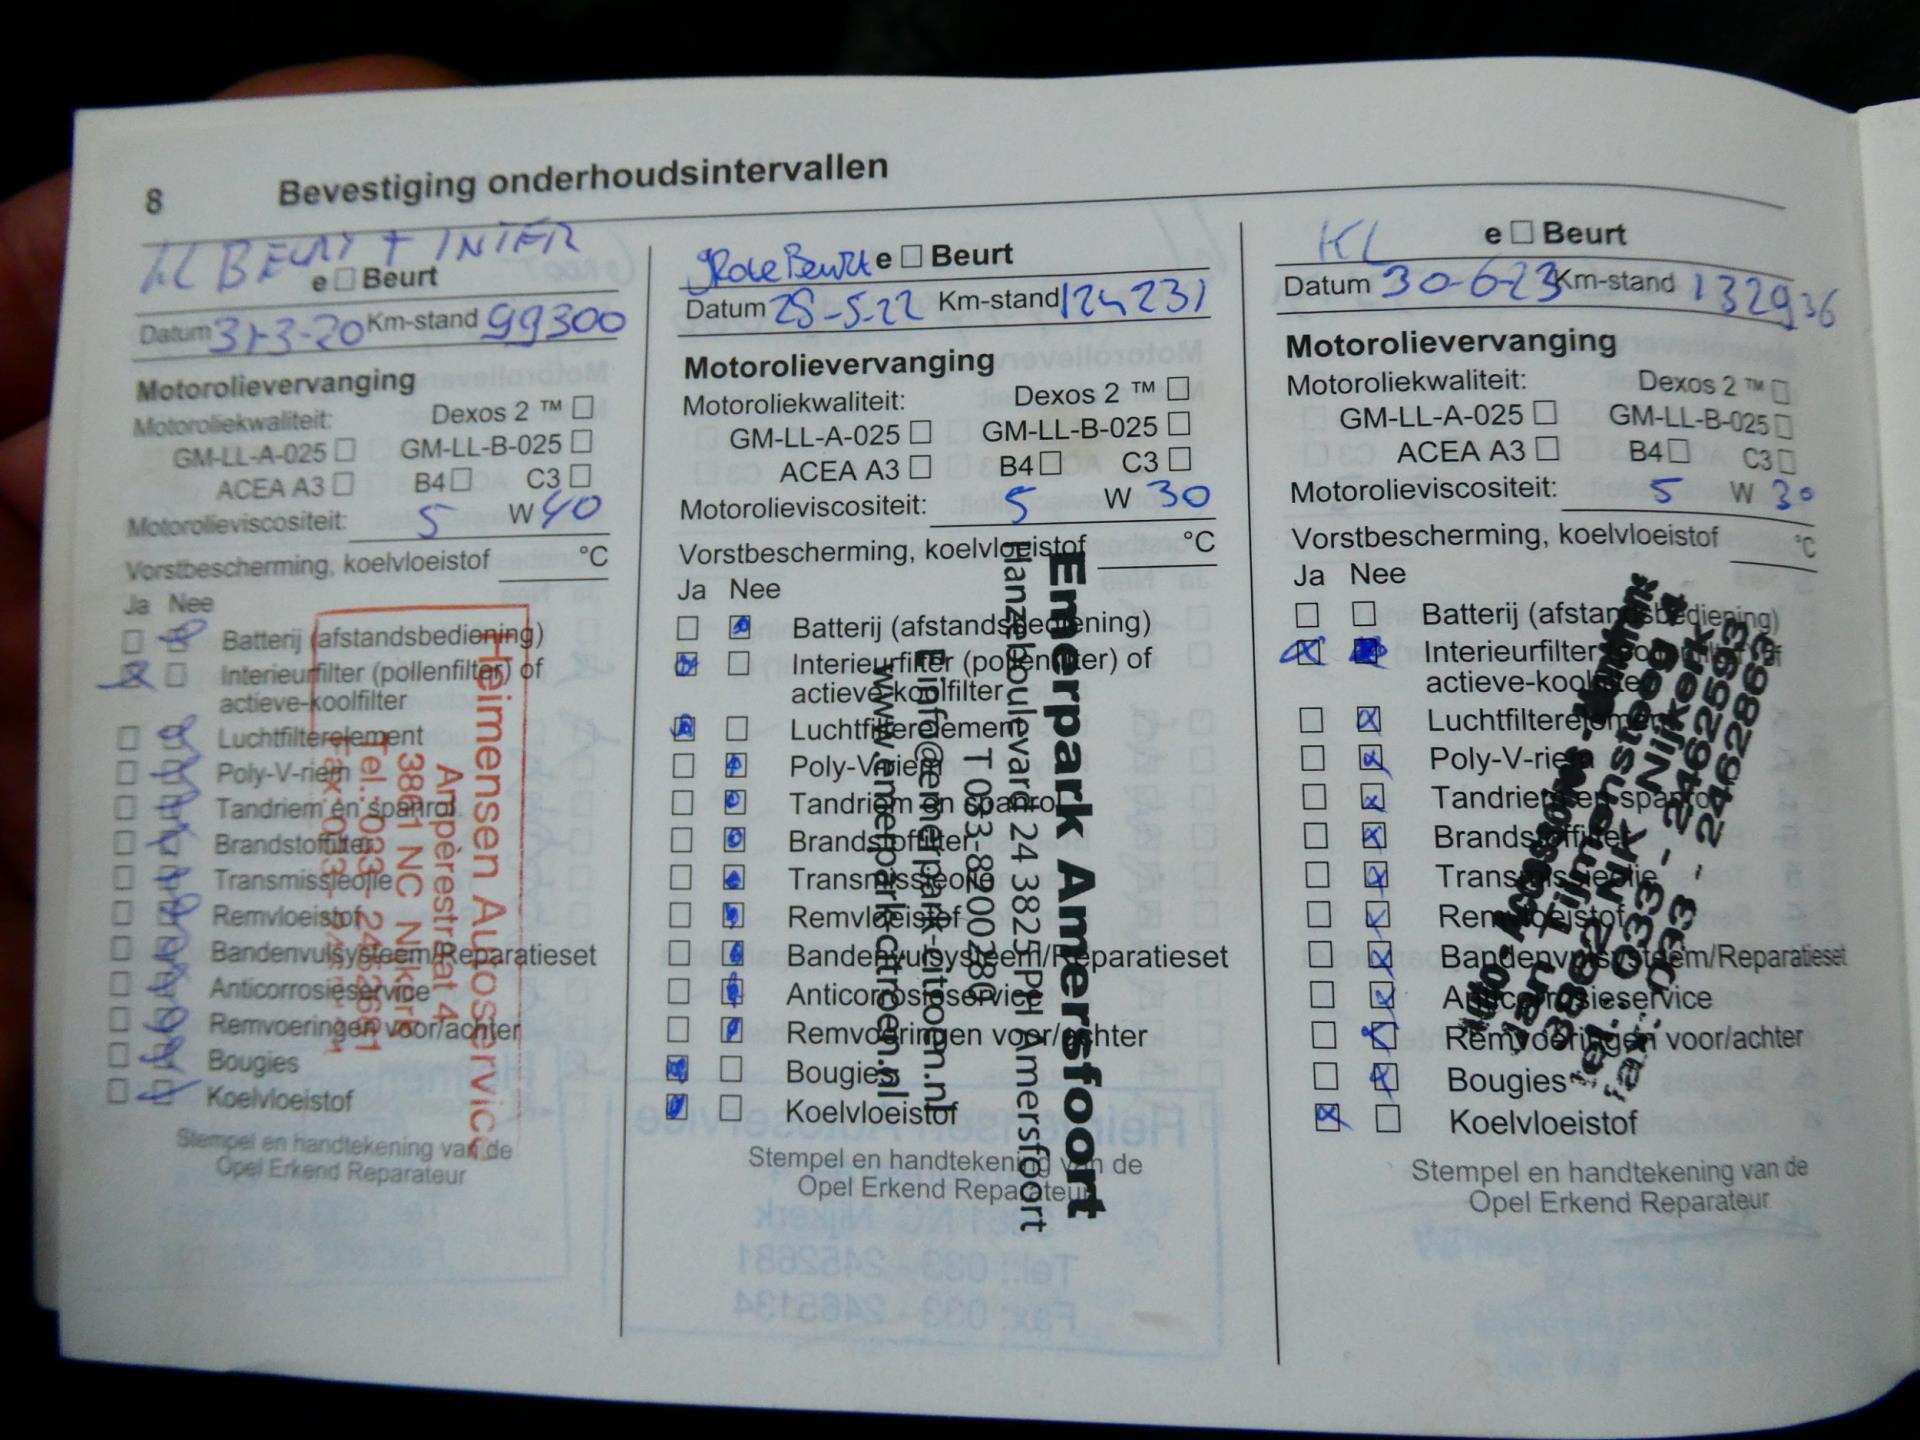 8 Bevestiging onderhoudsintervallen
KL BEURT + INTER
e Beurt
Datum 31-3-20 Km-stand 99300
Motorolievervanging
Motoroliekwaliteit: Dexos 2 ™
GM-LL-A-025 GM-LL-B-025
ACEA A3 B4 C3
Motorolieviscositeit: 5 W 40
Vorstbescherming, koelvloeistof °C
Ja Nee
Batterij (afstandsbediening)
Interieurfilter (pollenfilter) of
actieve-koolfilter
Luchtfilterelement
Poly-V-riem
Tandriem en spanrol
Brandstoffilter
Transmissieolie
Remvloeistof
Bandenvulsysteem/Reparatieset
Anticorrosieservice
Remvoeringen voor/achter
Bougies
Koelvloeistof
Stempel en handtekening van de
Opel Erkend Reparateur
Heimensen Autoservice
Ampèrestraat 4
3861 NC Nijkerk
Tel.: 033 - 2452681
Fax: 033
grote Beurt e Beurt
Datum 28-5-22 Km-stand 124231
Motorolievervanging
Motoroliekwaliteit: Dexos 2 ™
GM-LL-A-025 GM-LL-B-025
ACEA A3 B4 C3
Motorolieviscositeit: 5 W 30
Vorstbescherming, koelvloeistof °C
Ja Nee
Batterij (afstandsbediening)
Interieurfilter (pollenfilter) of
actieve-koolfilter
Luchtfilterelement
Poly-V-riem
Tandriem en spanrol
Brandstoffilter
Transmissieolie
Remvloeistof
Bandenvulsysteem/Reparatieset
Anticorrosieservice
Remvoeringen voor/achter
Bougies
Koelvloeistof
Stempel en handtekening van de
Opel Erkend Reparateur
Emerpark Amersfoort
Hanzeboulevard 24 3825 PH Amersfoort
T 033-8200280
E info@emerpark-citroen.nl
www.emerpark-citroen.nl
KL e Beurt
Datum 30-6-23 Km-stand 132936
Motorolievervanging
Motoroliekwaliteit: Dexos 2 ™
GM-LL-A-025 GM-LL-B-025
ACEA A3 B4 C3
Motorolieviscositeit: 5 W 30
Vorstbescherming, koelvloeistof °C
Ja Nee
Batterij (afstandsbediening)
Interieurfilter (pollenfilter) of
actieve-koolfilter
Luchtfilterelement
Poly-V-riem
Tandriem en spanrol
Brandstoffilter
Transmissieolie
Remvloeistof
Bandenvulsysteem/Reparatieset
Anticorrosieservice
Remvoeringen voor/achter
Bougies
Koelvloeistof
Stempel en handtekening van de
Opel Erkend Reparateur
Jan Tijmensteeg 4
3862 NK Nijkerk
tel. 033 - 2462593
fax. 033 - 2462863